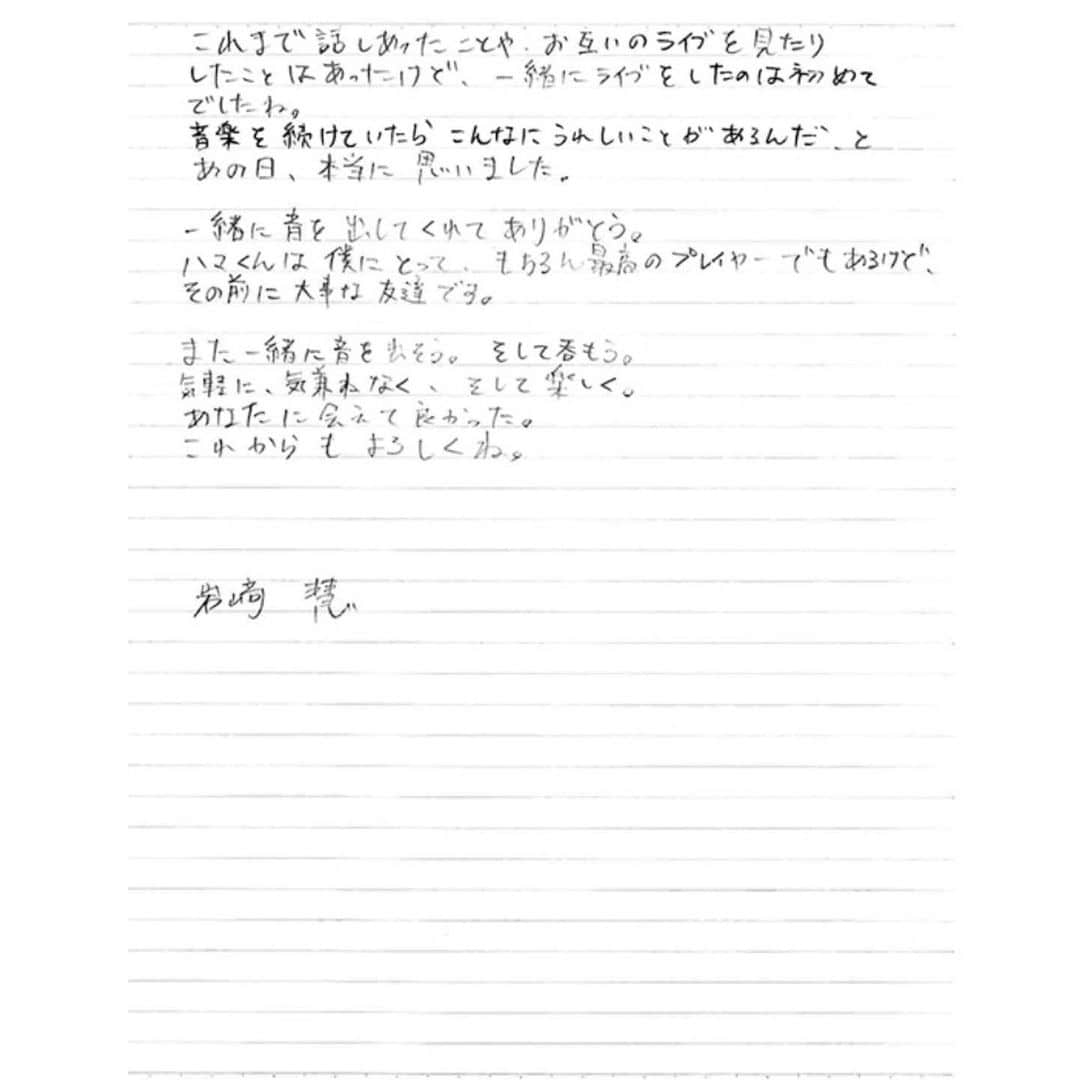 これまで話しあったことや、お互いのライブを見たり
したことはあったけど、一緒にライブをしたのは初めて
でしたね。
音楽を続けていたらこんなにうれしいことがあるんだ、と
あの日、本当に思いました。
一緒に音を出してくれてありがとう。
ハマくんは僕にとって、もちろん最高のプレイヤーでもあるけど、
その前に大事な友達です。
また一緒に音を出そう。そして呑もう。
気軽に、気兼ねなく、そして楽しく。
あなたに会えて良かった。
これからもよろしくね。
岩崎 慧